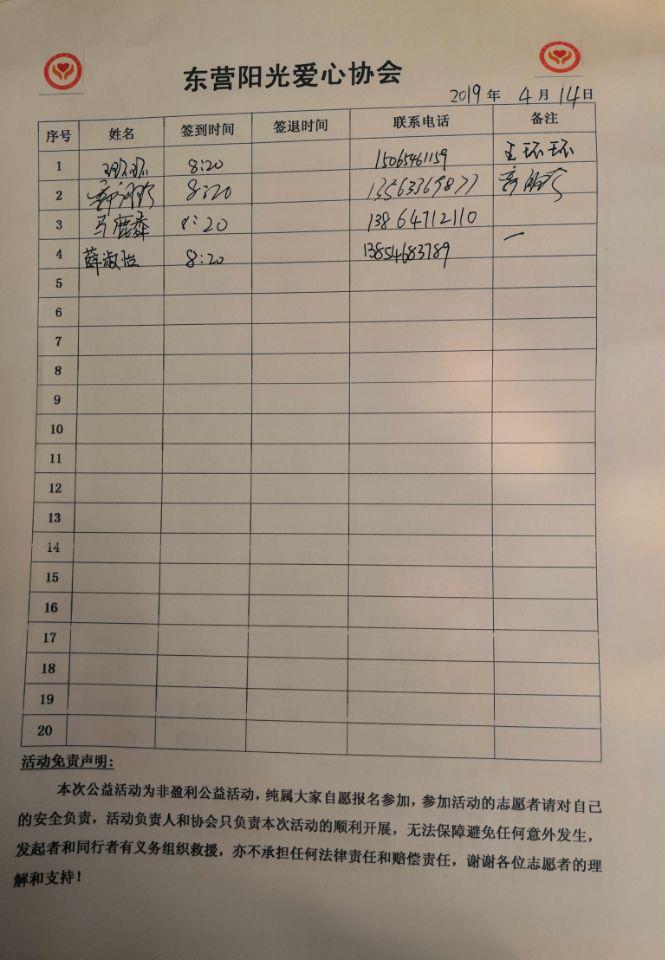 东营阳光爱心协会
2019年 4月14日
序号 姓名 签到时间 签退时间 联系电话 备注
1 8:20 15065461159 王环环
2 8:20 13563369877
3 马鹿森 8:20 13864712110
4 薛淑怡 8:20 13854683789 一
5
6
7
8
9
10
11
12
13
14
15
16
17
18
19
20
活动免责声明:
本次公益活动为非盈利公益活动，纯属大家自愿报名参加，参加活动的志愿者请对自己
的安全负责，活动负责人和协会只负责本次活动的顺利开展，无法保障避免任何意外发生，
发起者和同行者有义务组织救援，亦不承担任何法律责任和赔偿责任，谢谢各位志愿者的理
解和支持！